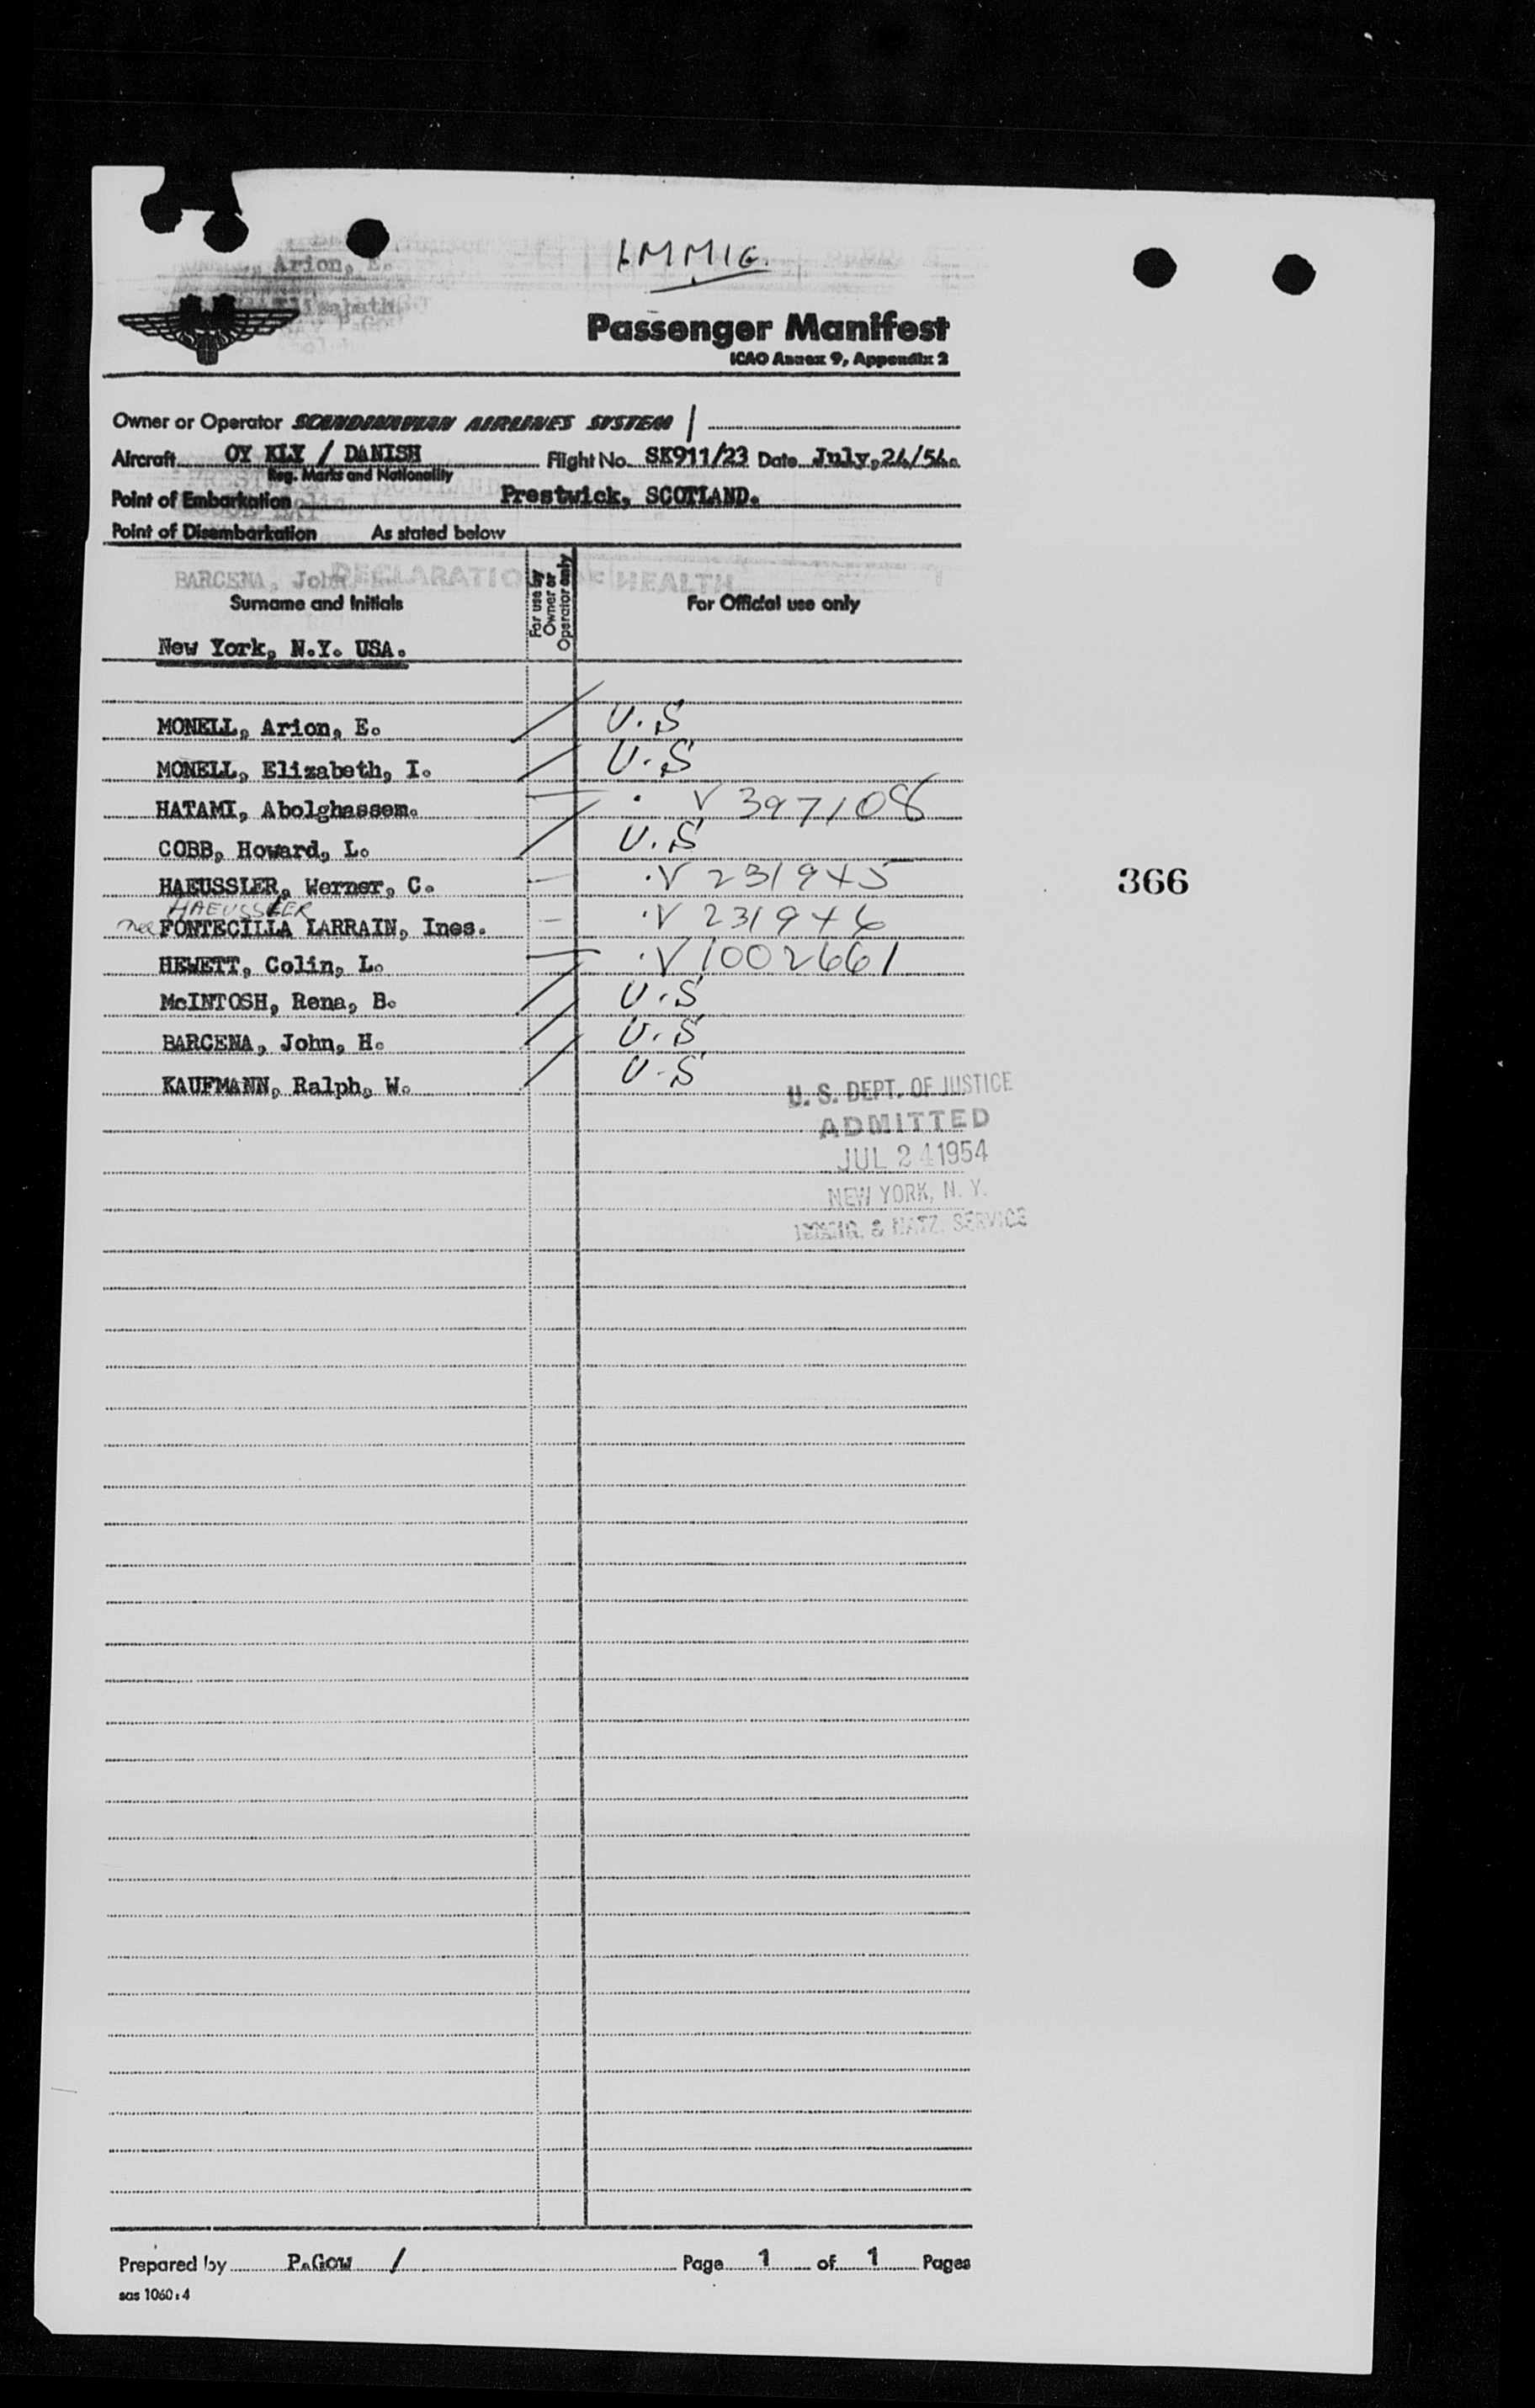 Arion, E.
IMMIG.
Elizabeth
Passenger Manifest
ICAO Annex 9, Appendix 2
Owner or Operator SCANDINAVIAN AIRLINES SYSTEM /
Aircraft OY KLY / DANISH Flight No. SK911/23 Date July, 24/54.
Reg. Marks and Nationality
Point of Embarkation Prestwick, SCOTLAND.
Point of Disembarkation As stated below
BARCENA, John DECLARATION OF HEALTH
Surname and Initials For use by Owner or Operator only For Official use only
New York, N.Y. USA.
MONELL, Arion, E. U.S
MONELL, Elizabeth, I. U.S
HATAMI, Abolghassem. V 397108
COBB, Howard, L. U.S
HAEUSSLER, Werner, C. V 231945
366
HAEUSSLER
nee FONTECILLA LARRAIN, Ines. V 231946
HEWETT, Colin, L. V 1002661
McINTOSH, Rena, B. U.S
BARCENA, John, H. U.S
KAUFMANN, Ralph, W. U.S
U. S. DEPT. OF JUSTICE
ADMITTED
JUL 24 1954
NEW YORK, N. Y.
IMMIG. & NATZ. SERVICE
Prepared by P.Gow / Page 1 of 1 Pages
sas 1060:4